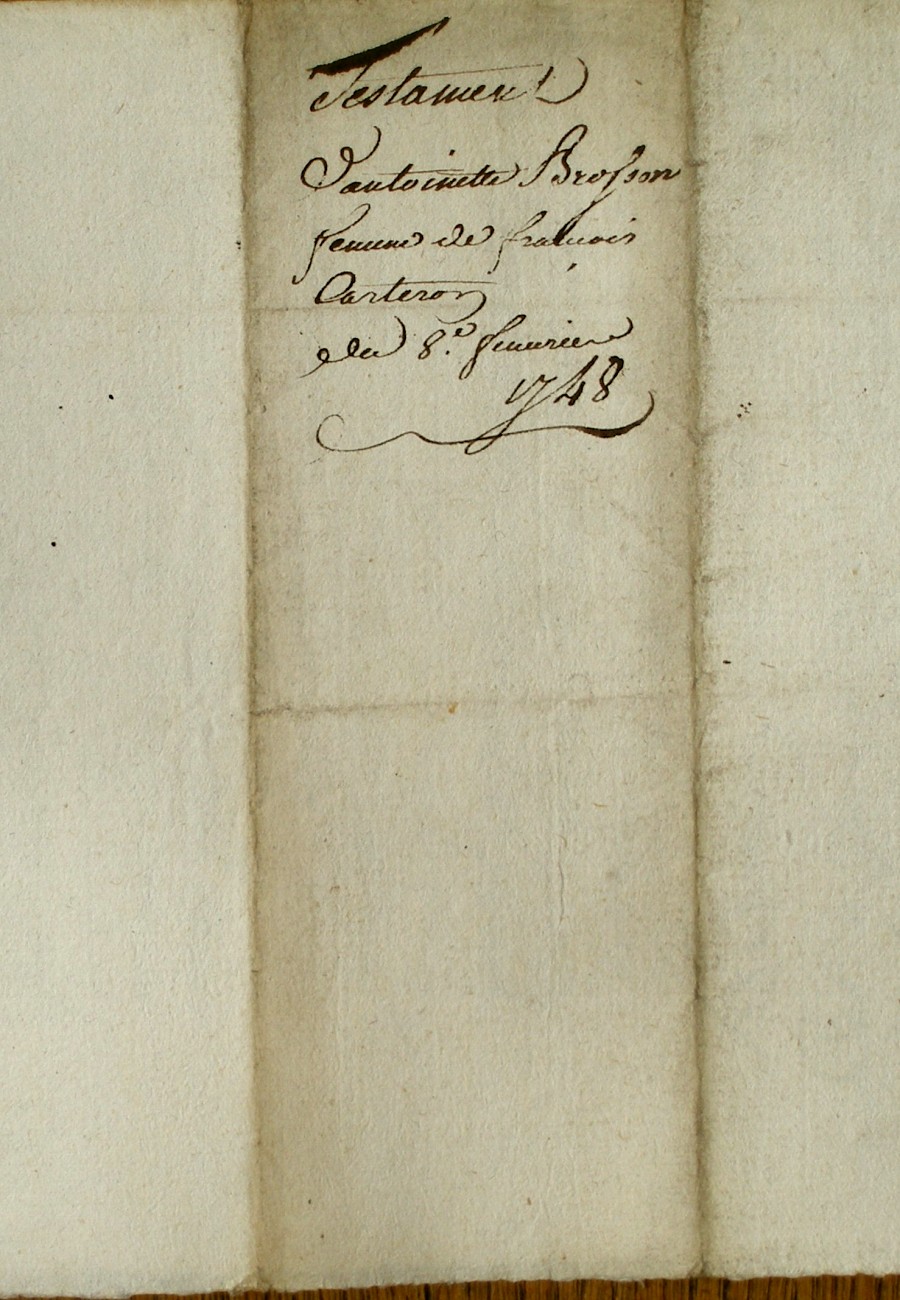 Testament
D'antoinette Brosson
femme de francois
Carteron
du 8.e feuurier
1748